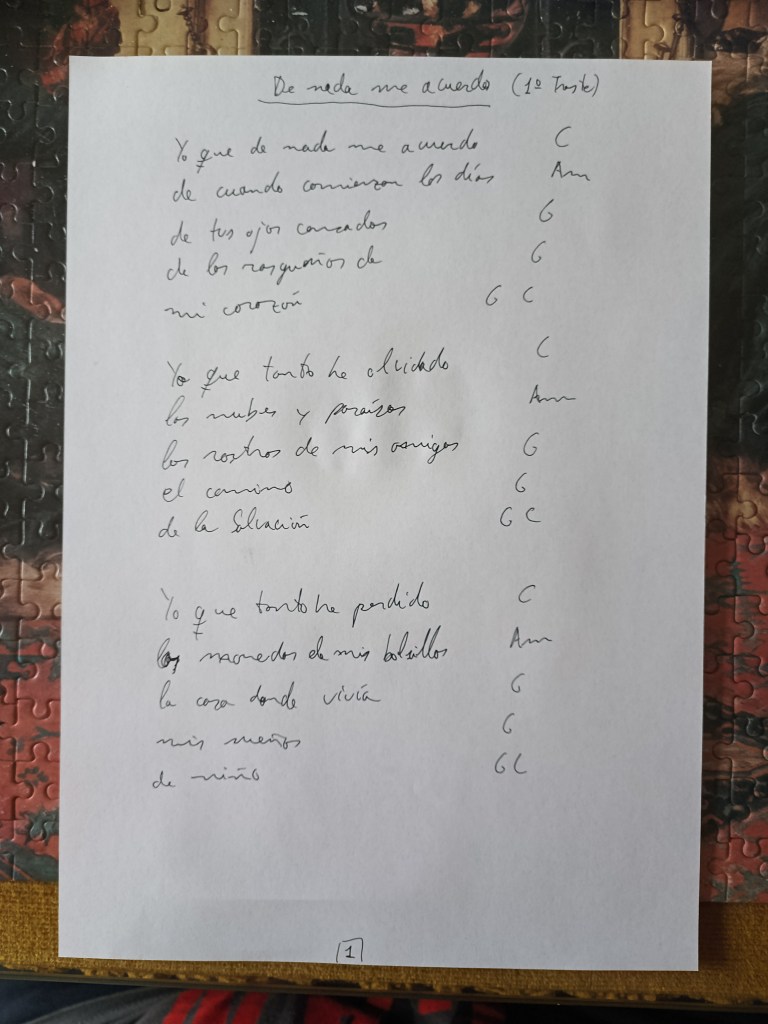 De nada me acuerdo (1º Traste)
Yo que de nada me acuerdo C
de cuando comienzan los días Am
de tus ojos cansados G
de los rasguños de G
mi corazón G C
Yo que tanto he olvidado C
las nubes y paraísos Am
los rostros de mis amigos G
el camino G
de la Salvación G C
Yo que tanto he perdido C
las monedas de mis bolsillos Am
la casa donde vivía G
mis sueños G
de niño G C
1